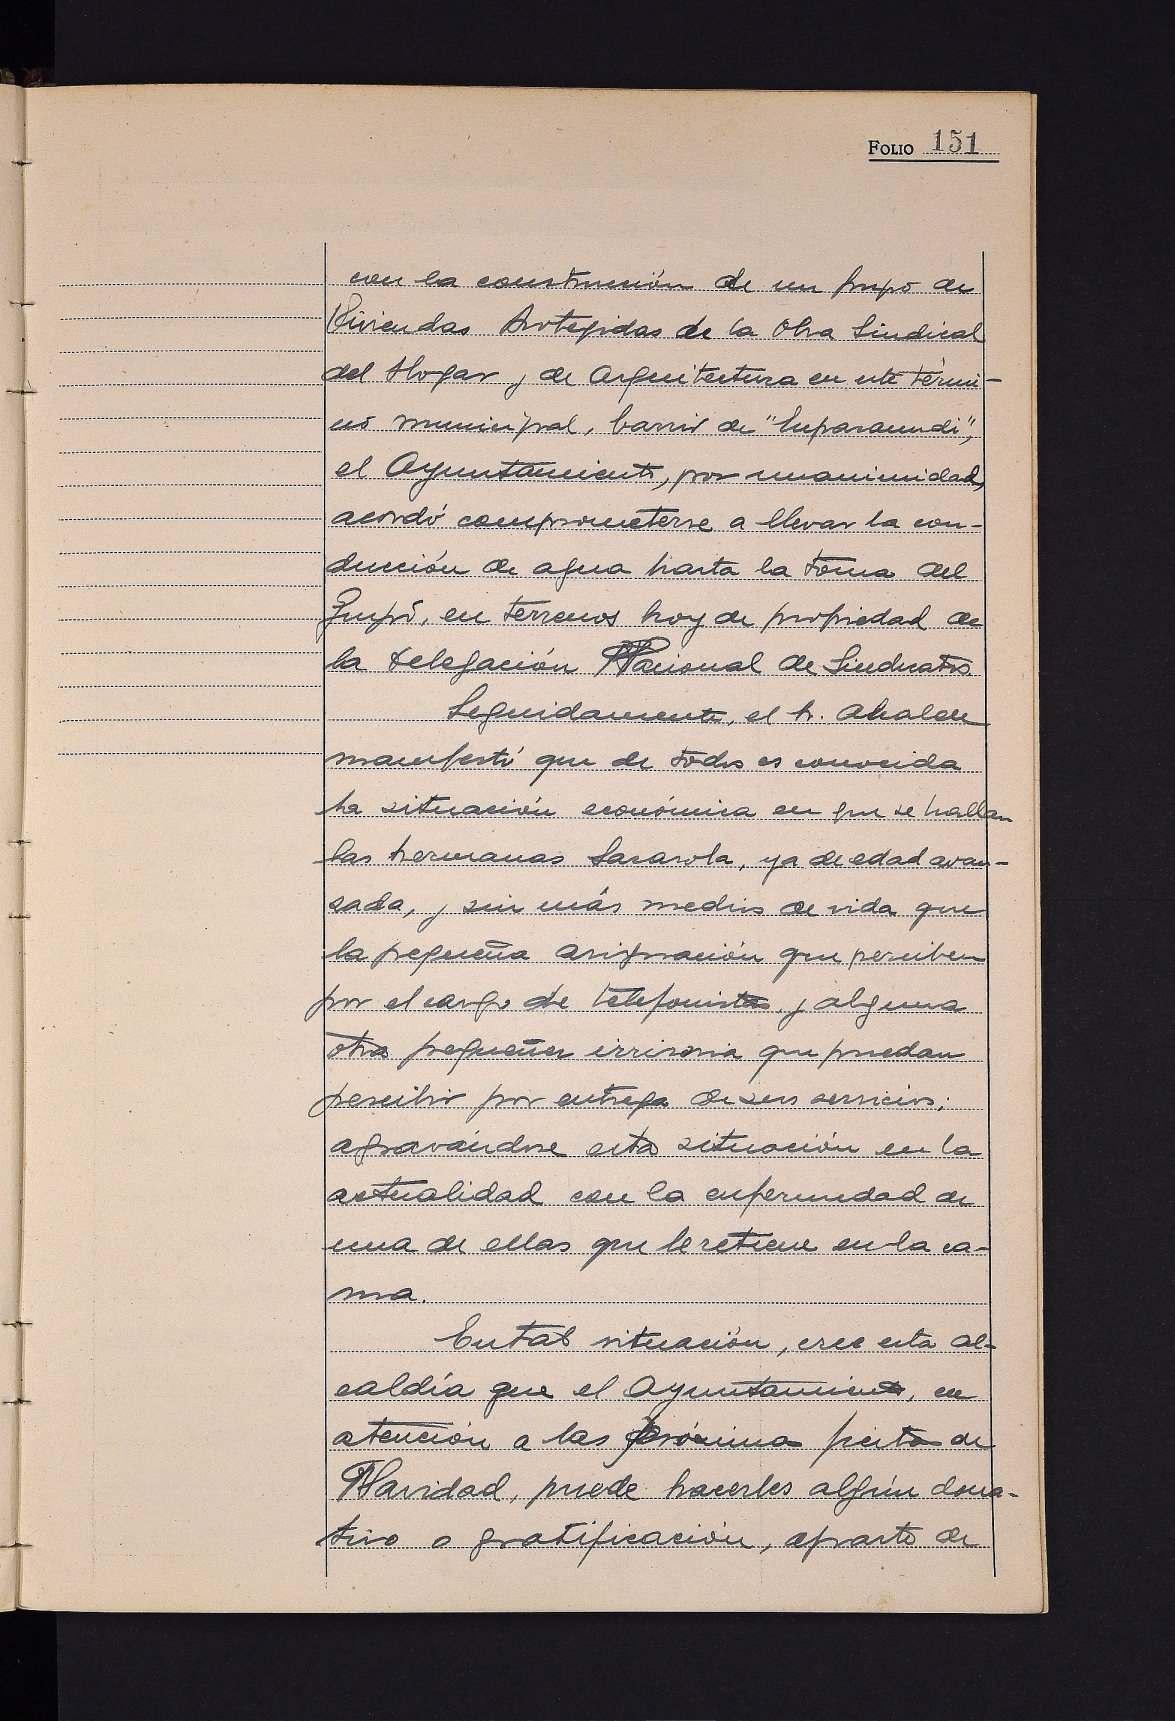 FOLIO 151
con la construcción de un grupo de
Viviendas Protegidas de la Obra Sindical
del Hogar y de Arquitectura en este térmi-
no municipal, barrio de "Luparaundi",
el Ayuntamiento, por unanimidad,
acordó comprometerse a llevar la con-
ducción de agua hasta la toma del
Grupo, en terrenos hoy de propiedad de
la Delegación Nacional de Sindicatos
Seguidamente, el Sr. Alcalde
manifestó que de todos es conocida
la situación económica en que se hallan
las hermanas Sasarola, ya de edad avan-
zada, y sin más medios de vida que
la pequeña asignación que perciben
por el cargo de telefonistas, y alguna
otra pequeñez irrisoria que puedan
percibir por entrega de sus servicios;
agravándose esta situación en la
actualidad con la enfermedad de
una de ellas que le retiene en la ca-
ma.
En tal situación, cree esta al-
caldía que el Ayuntamiento, en
atención a las próximas fiestas de
Navidad, puede hacerles algún dona-
tivo o gratificación, aparte de